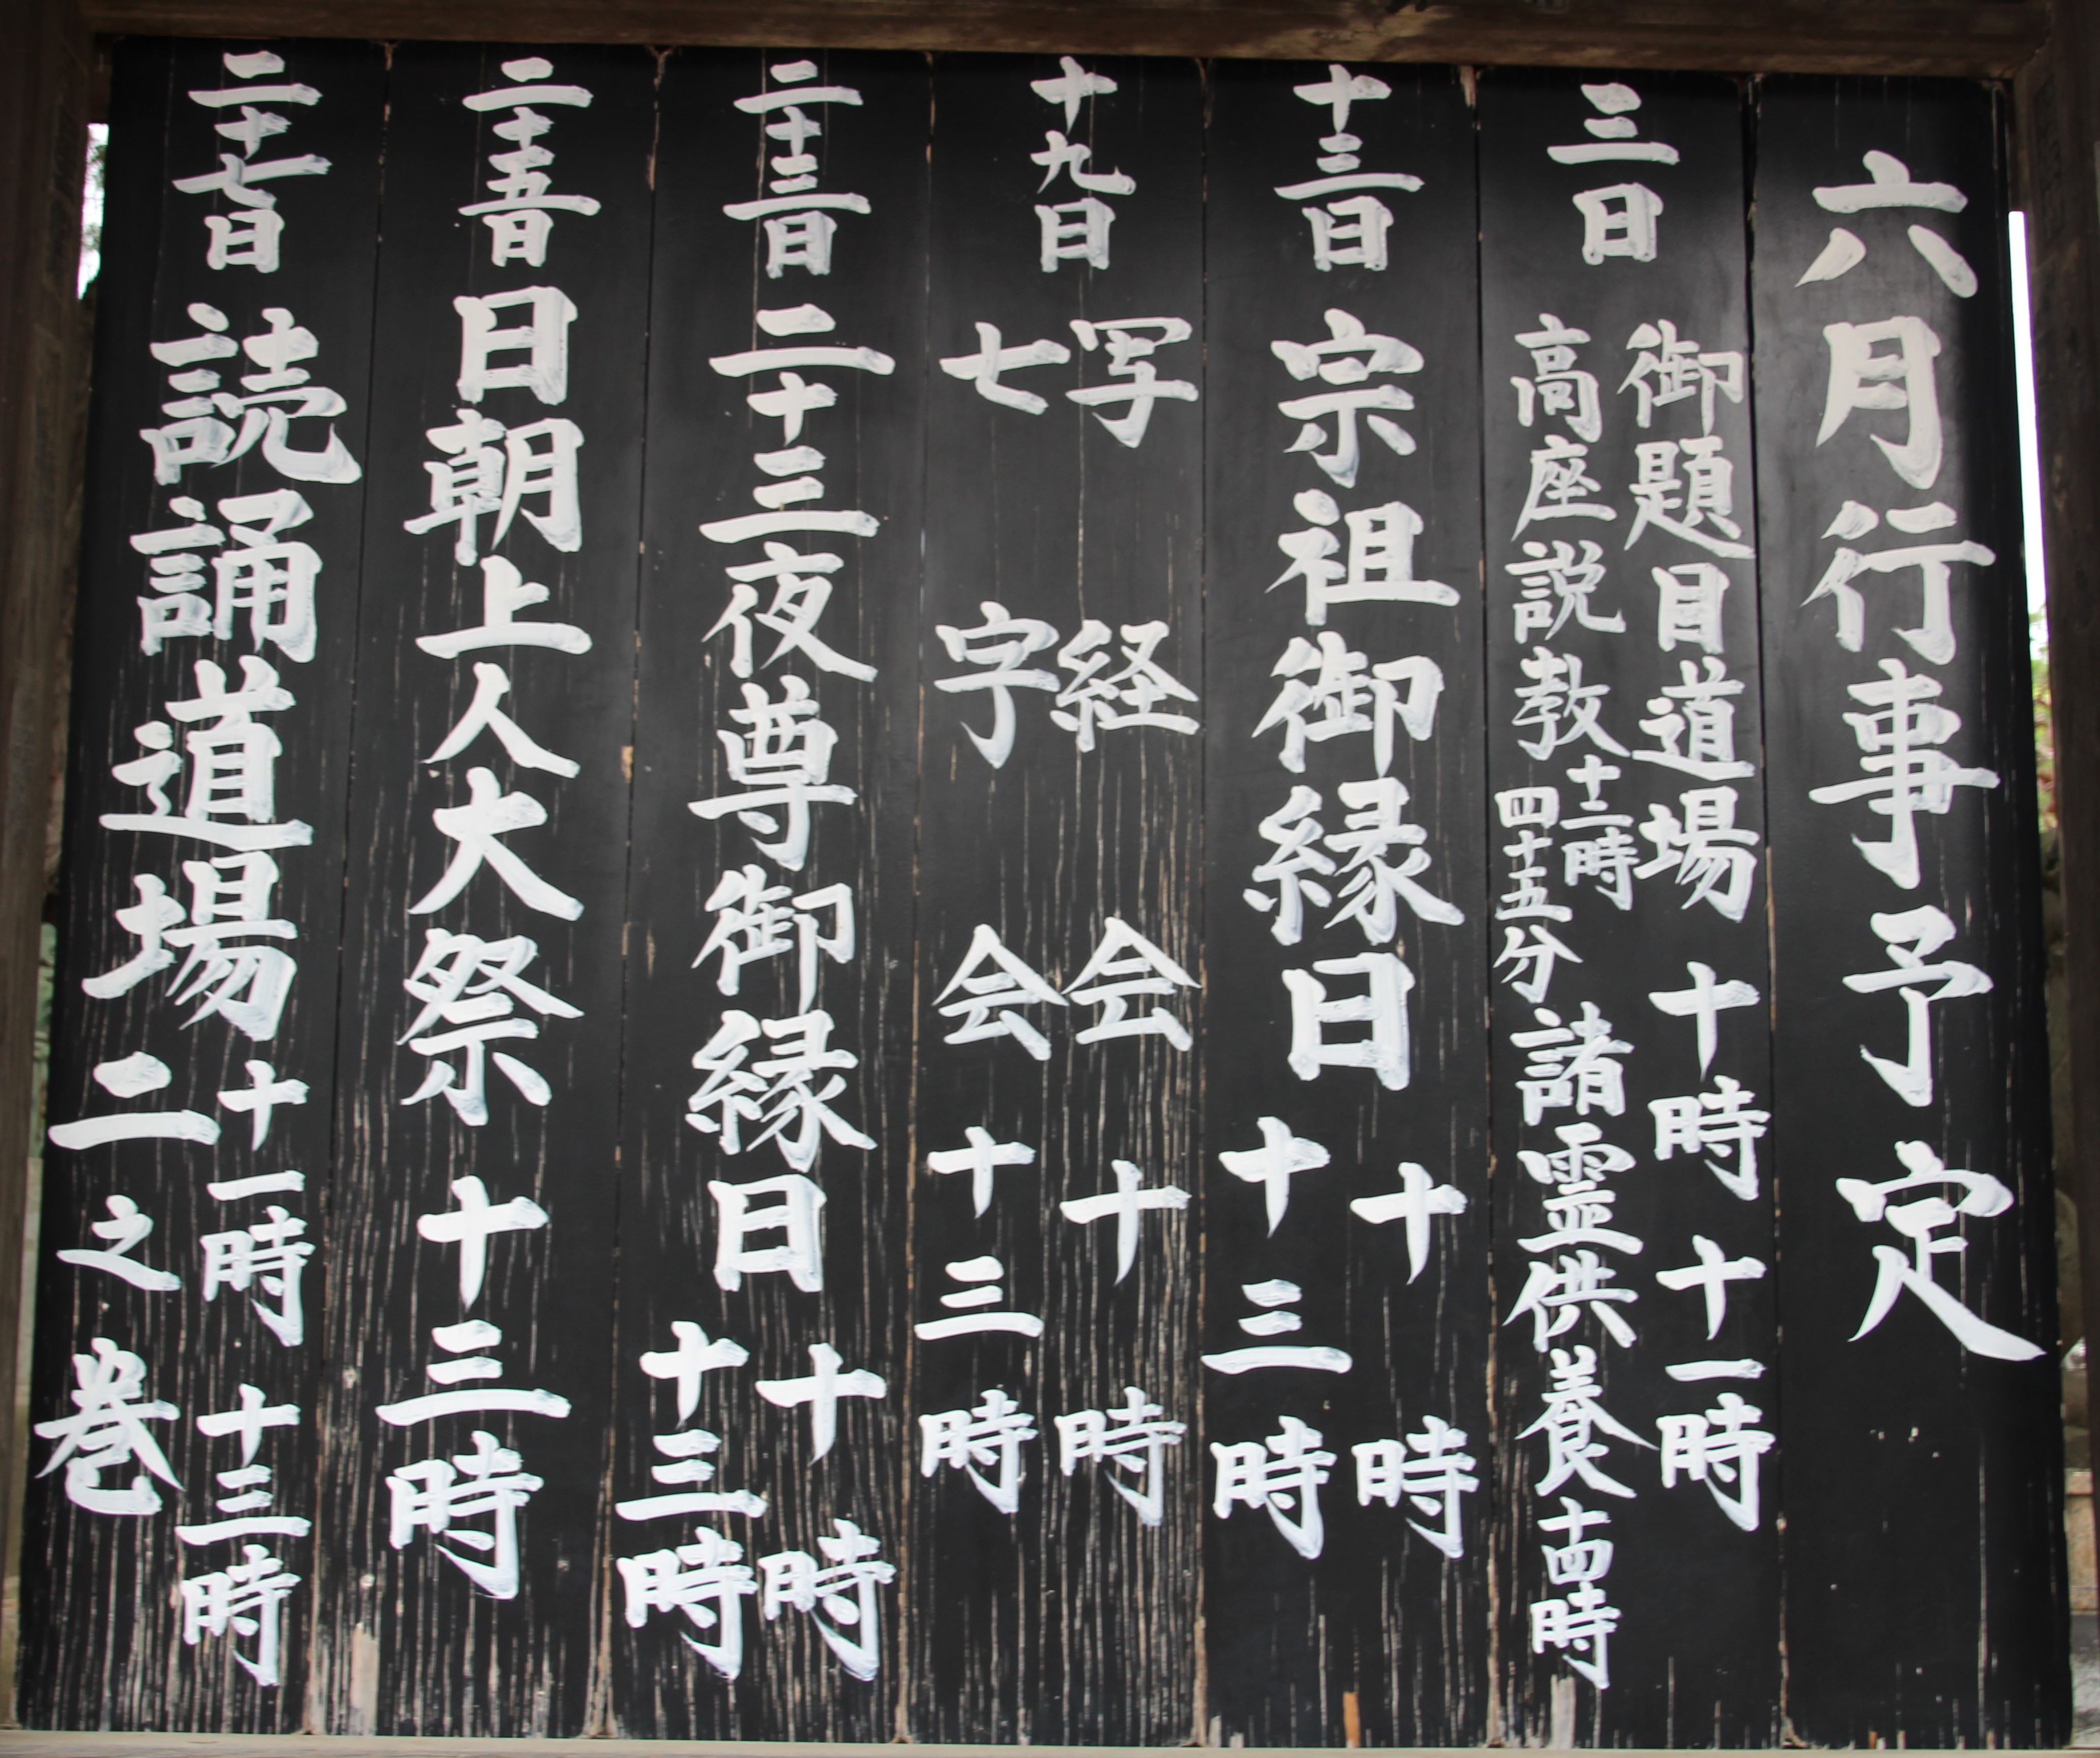 六月行事予定
三日
御題目道場 十時 十一時
高座説教 十二時四十五分 諸霊供養 十四時
十三日 宗祖御縁日 十時
十三時
十九日
写経会 十時
七字会 十三時
二十三日 二十三夜尊御縁日 十時
十三時
二十五日 日朝上人大祭 十三時
二十七日 読誦道場 十一時 十三時
二之巻